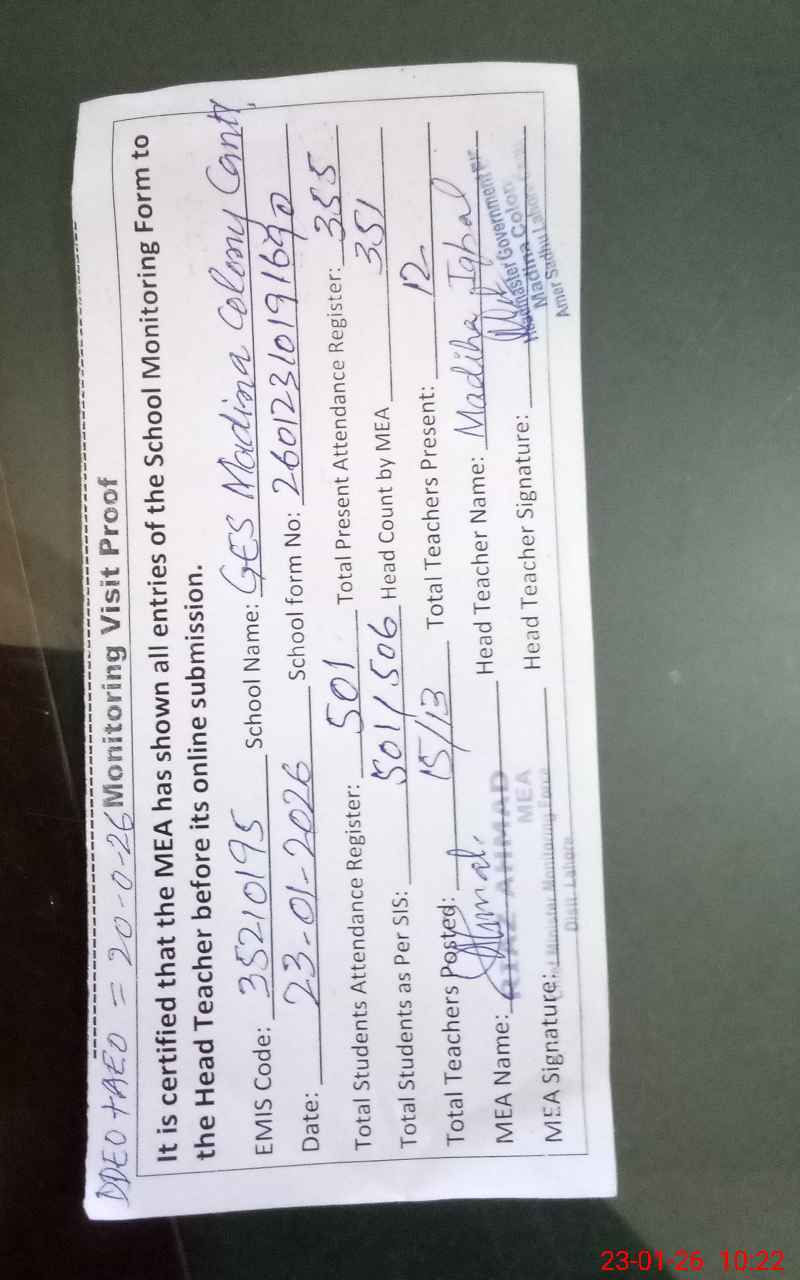 DDEO + AEO = 20-0-26 Monitoring Visit Proof
It is certified that the MEA has shown all entries of the School Monitoring Form to
the Head Teacher before its online submission.
EMIS Code: 35210195 School Name: GES Madina Colony Cantt.
Date: 23-01-2026 School form No: 26012310191690
Total Students Attendance Register: 501 Total Present Attendance Register: 355
Total Students as Per SIS: 501/506 Head Count by MEA 351
Total Teachers Posted: 15/13 Total Teachers Present: 12
MEA Name: Head Teacher Name: Madiha Iqbal
RIAZ AHMAD
MEA
Minister Monitoring Force
Distt. Lahore
MEA Signature: Head Teacher Signature:
Headmaster Government
Madina Colony
Amer Sadhu Lahore
23-01-26 10:22